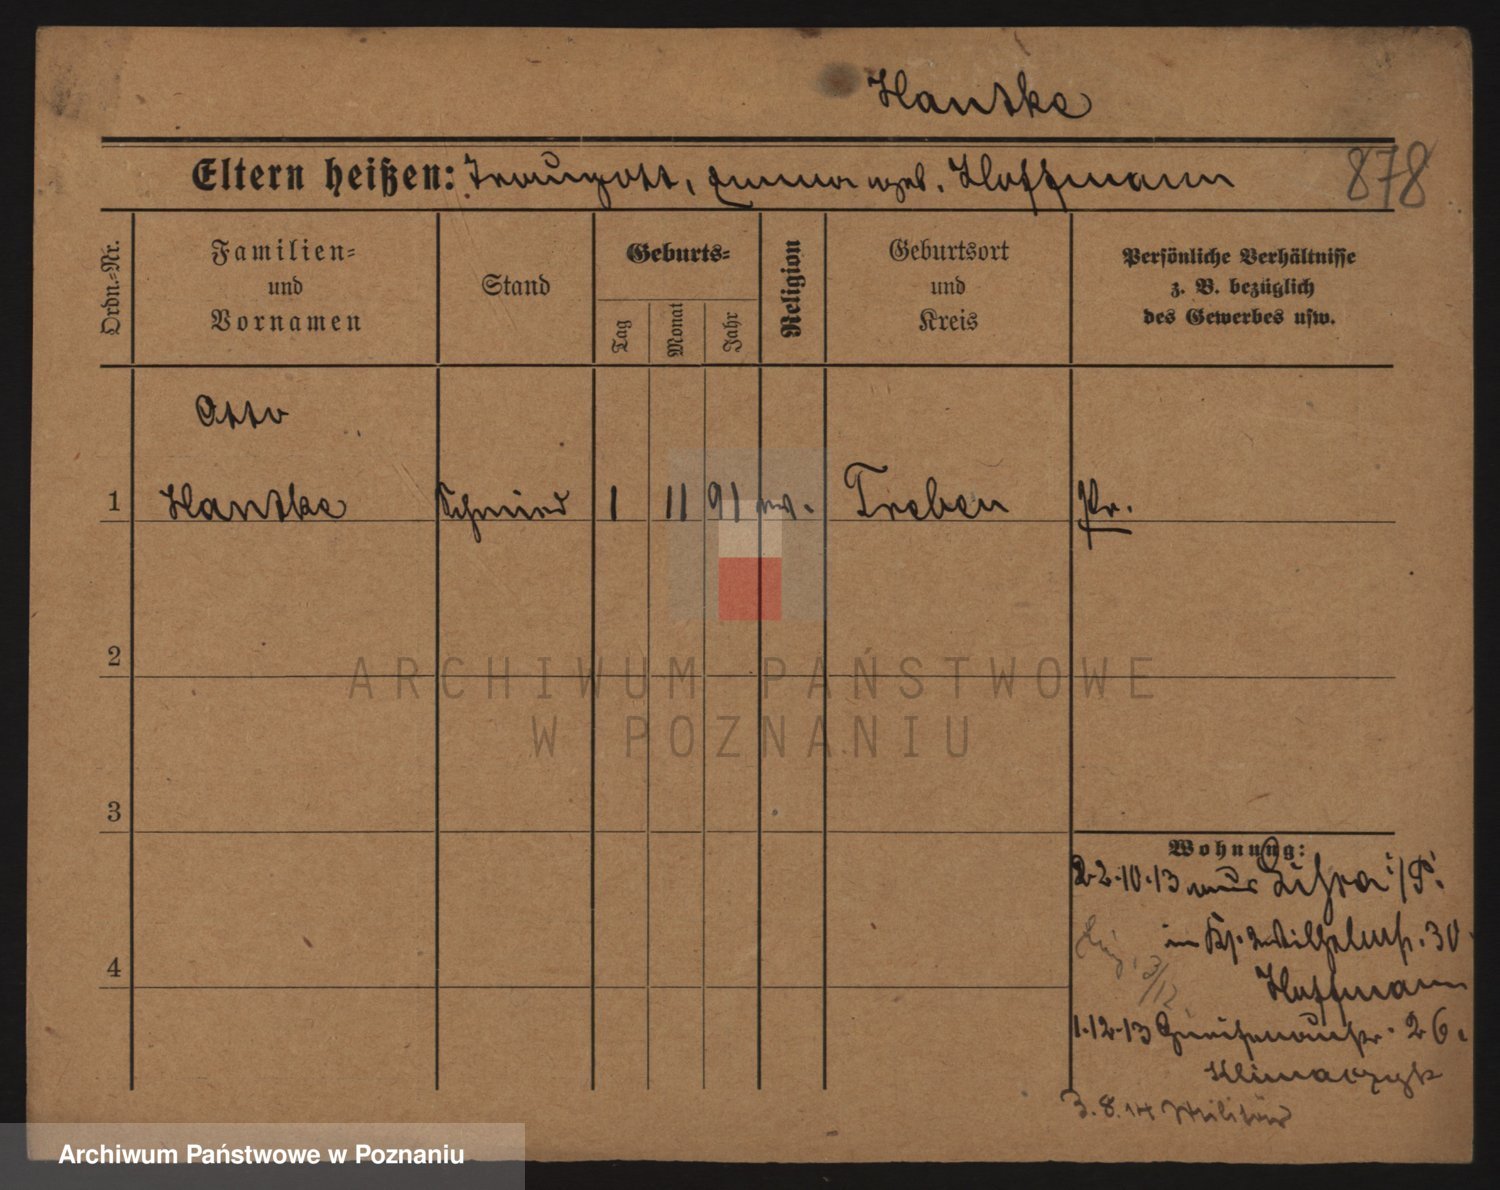 Hantke
Eltern heißen: Traugott, Emma geb. Hoffmann
878
Ordn.=Nr.
Familien=
und
Vornamen
Stand
Geburts=
Tag
Monat
Jahr
Religion
Geburtsort
und
Kreis
Persönliche Verhältnisse
z. B. bezüglich
des Gewerbes usw.
Otto
1 Hantke Schmied 1 11 91 ev. Treben Pr.
2
3
4
Wohnung:
22.10.13 aus i/P.
in Kp. Wilhelmstr. 30.
Hoffmann
3/12
1.12.13 Gneisenaustr. 26.
Klimaczyk
3.8.14 Militär
ARCHIWUM PAŃSTWOWE
W POZNANIU
Archiwum Państwowe w Poznaniu